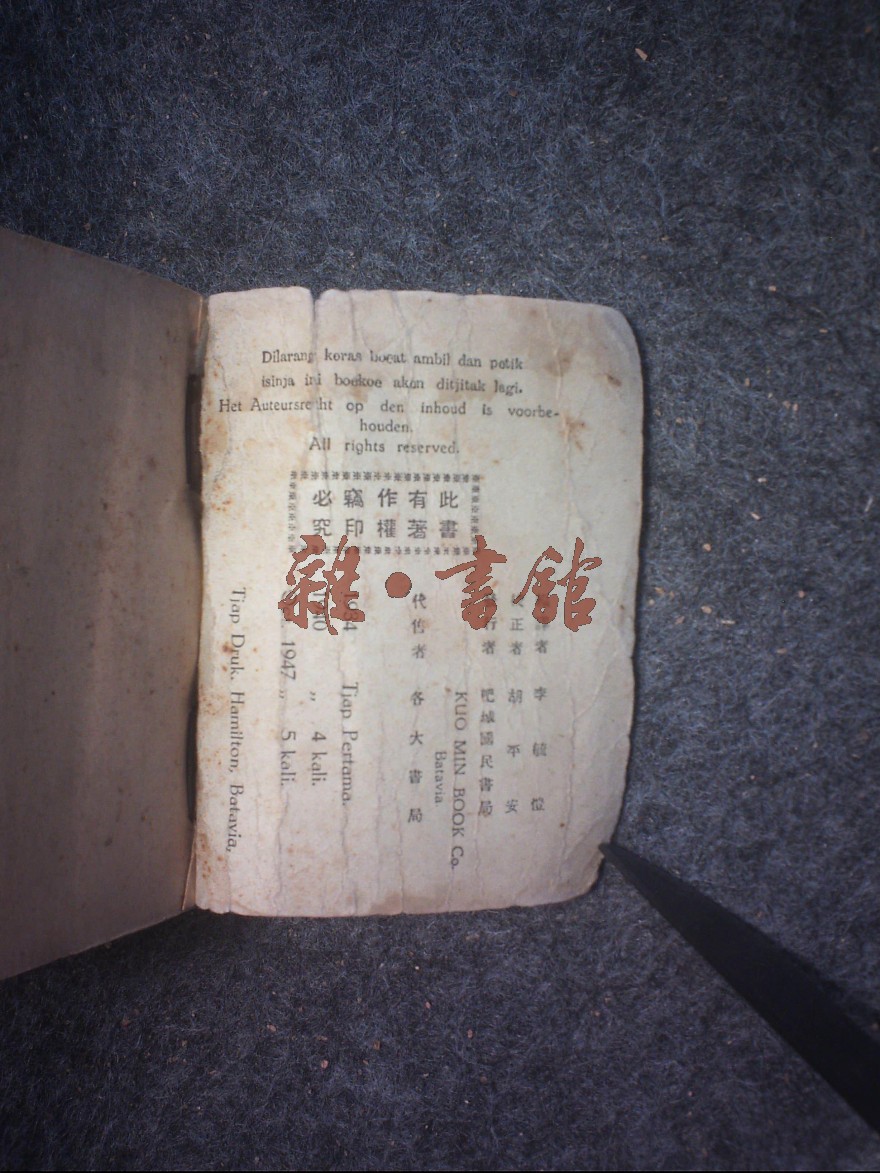 Dilarang keras boeat ambil dan petik
isinja ini boekoe akan ditjitak lagi.
Het Auteursrecht op den inhoud is voorbe-
houden.
All rights reserved.
此書
有著
作權
竊印
必究
者 李毓愷
正者 胡平安
行者 吧城國民書局
KUO MIN BOOK Co.
Batavia
代售者 各大書局
Tjap Pertama.
„ 4 kali.
1947 „ 5 kali.
Tjap Druk. Hamilton, Batavia,
雜·書館